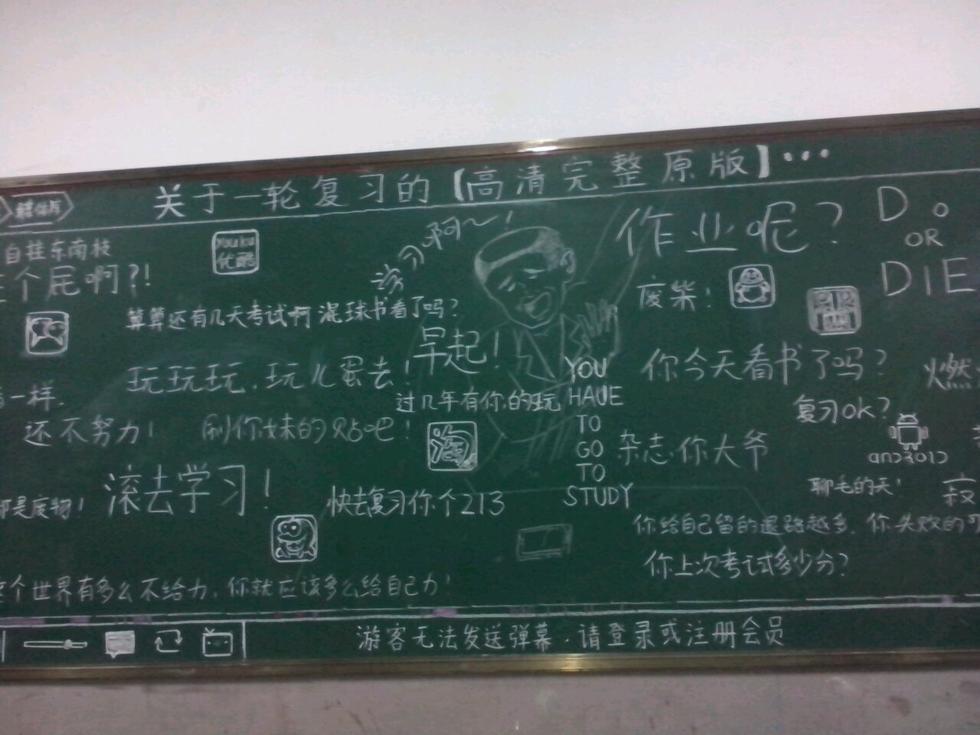 关于一轮复习的【高清完整原版】...
自挂东南枝
youku
优酷
个屁啊?!
复习啊~!
作业呢?
Do
OR
DIE
废柴!
算算还有几天考试啊 混球书看了吗?
早起!
玩玩玩,玩儿蛋去!
YOU
HAVE
TO
GO
TO
STUDY
你今天看书了吗?
燃
一样.
过几年有你的玩
复习OK?
还不努力!
刷你妹的贴吧!
淘
杂志.你大爷
android
是废物!
滚去学习!
快去复习你个213
聊毛的天!
你给自己留的退路越多,你失败的
你上次考试多少分?
个世界有多么不给力,你就应该多么给自己力!
游客无法发送弹幕.请登录或注册会员